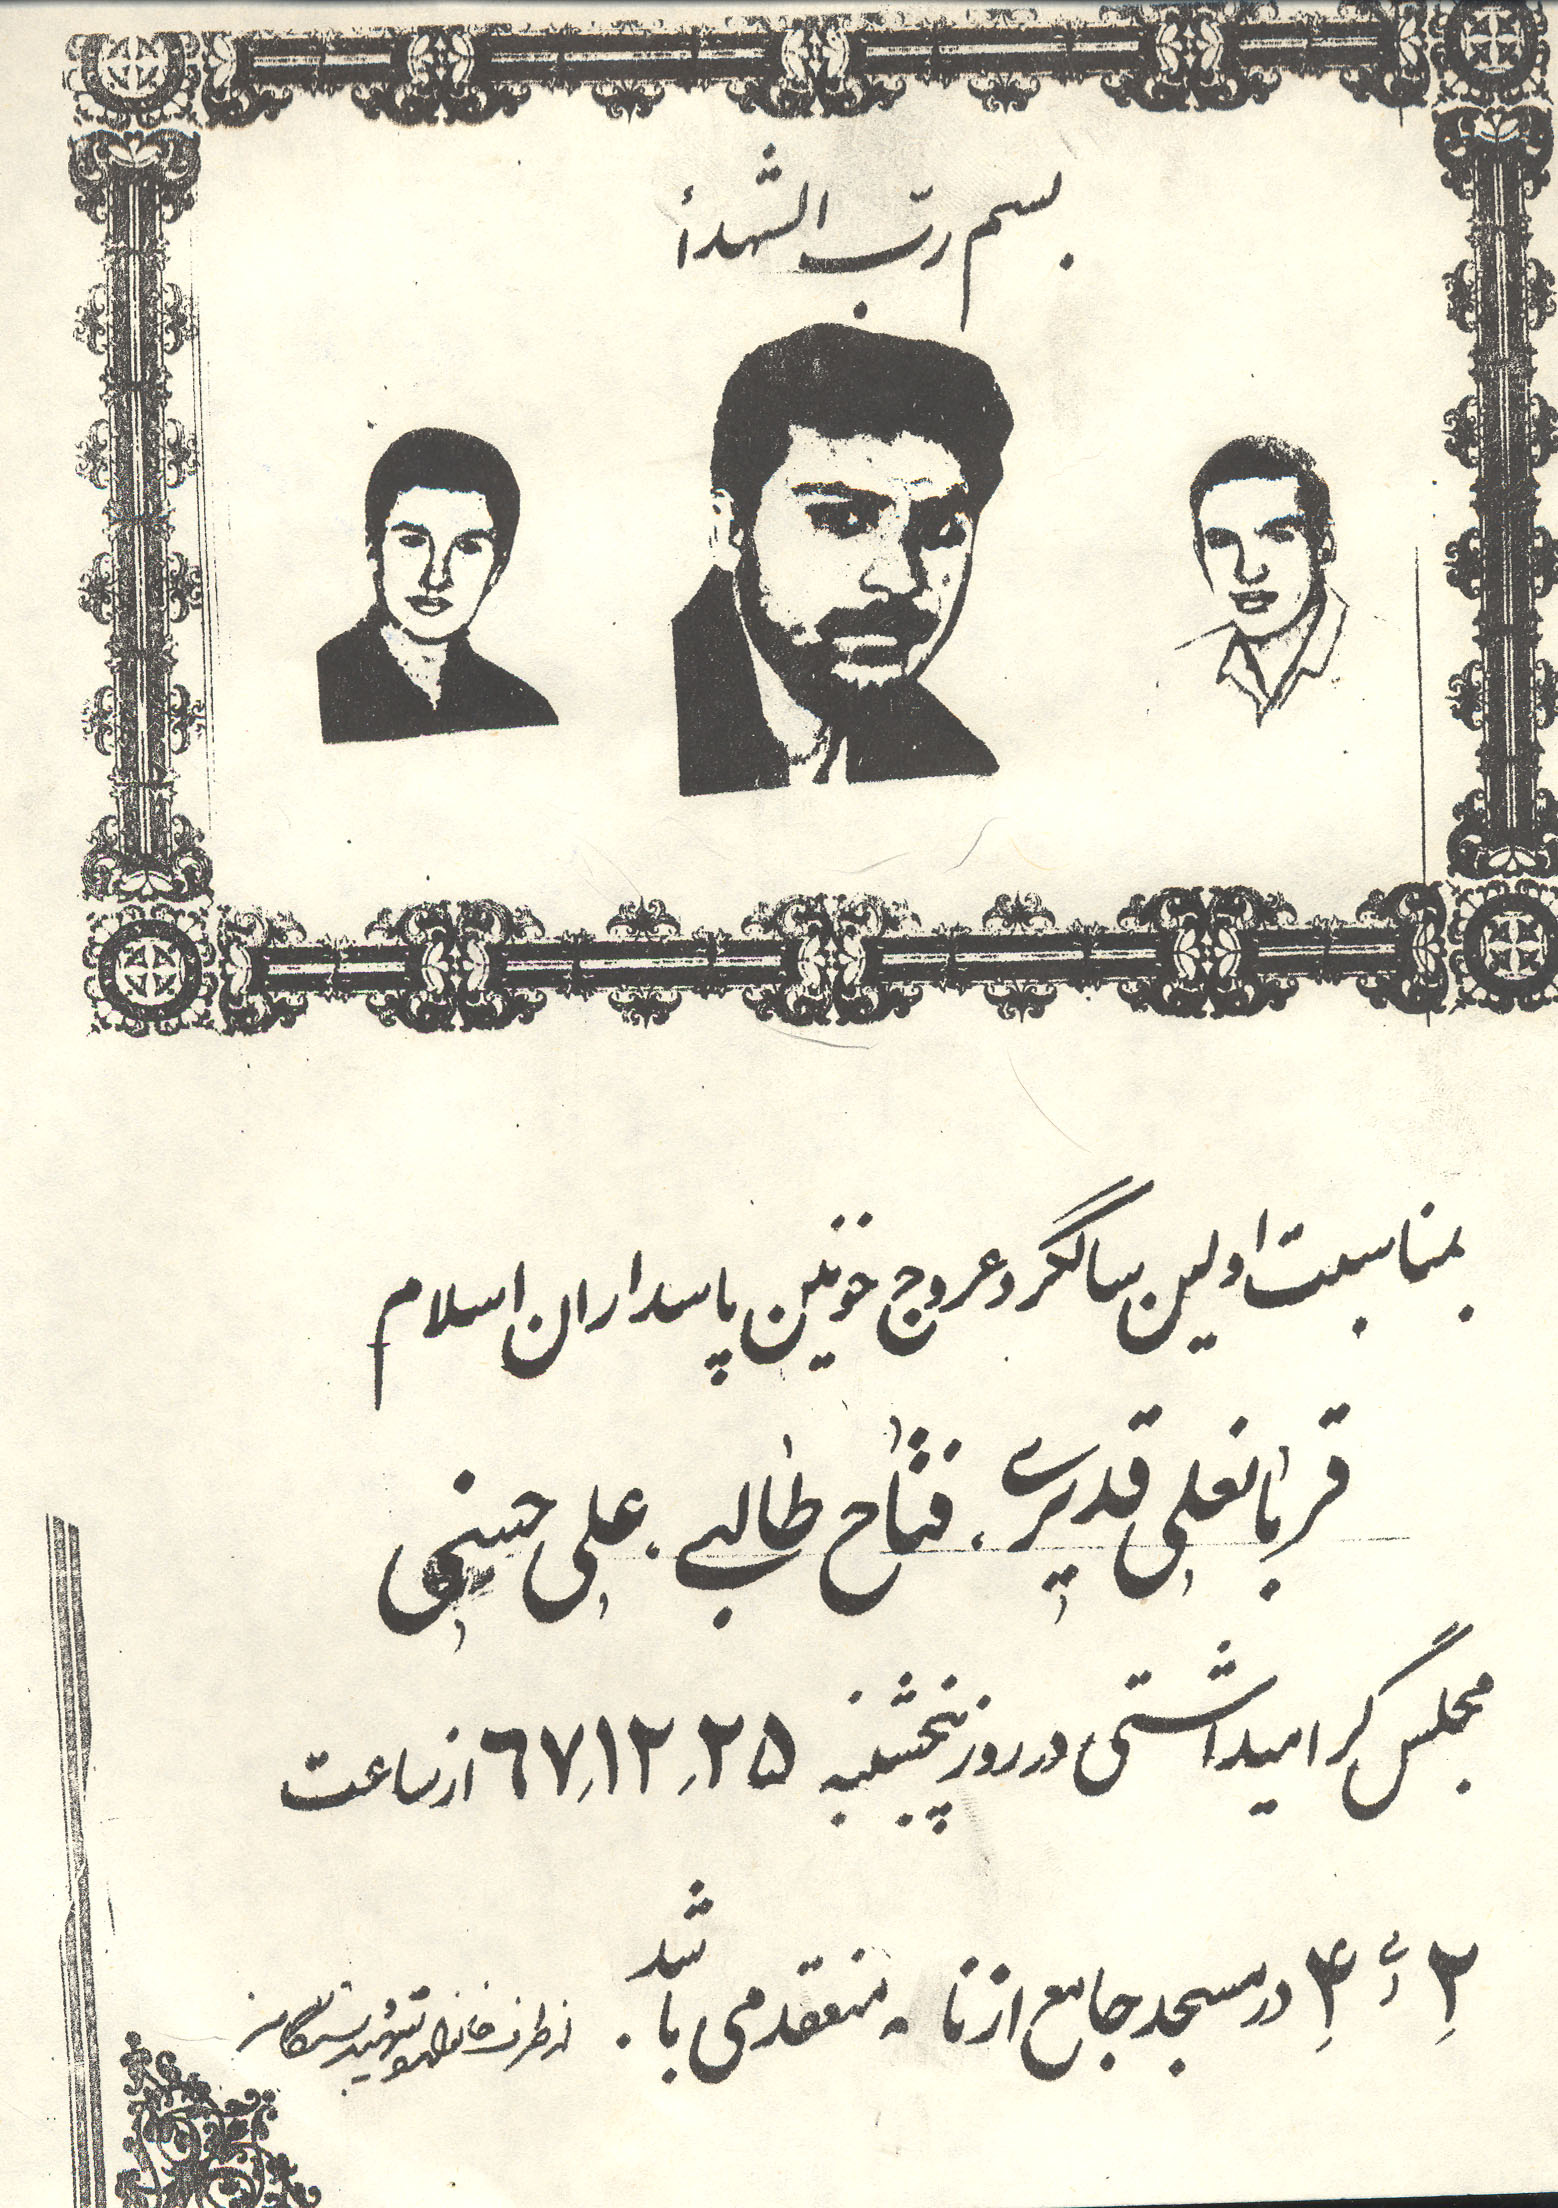 بسم ربّ الشهدأ
بمناسبت اولین سالگرد عروج خونین پاسداران اسلام
قربانعلی قدیری، فتاح طالبی، علی حسنی
مجلس گرامیداشتی در روز پنجشنبه ۶۷٫۱۲٫۲۵ از ساعت
۲ الی ۴ در مسجد جامع ازنا منعقد می باشد.
از طرف خانواده شهید و بستگان